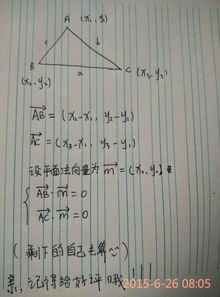 A (x₁, y₁)
c b
B a C (x₃, y₃)
(x₂, y₂)
AB = (x₂-x₁, y₂-y₁)
AC = (x₃-x₁, y₃-y₁)
设平面法向量为 m = (x₀, y₀)
AB · m = 0
AC · m = 0
(剩下的自己去算~)
亲,记得给好评哦!!!
2015-6-26 08:05